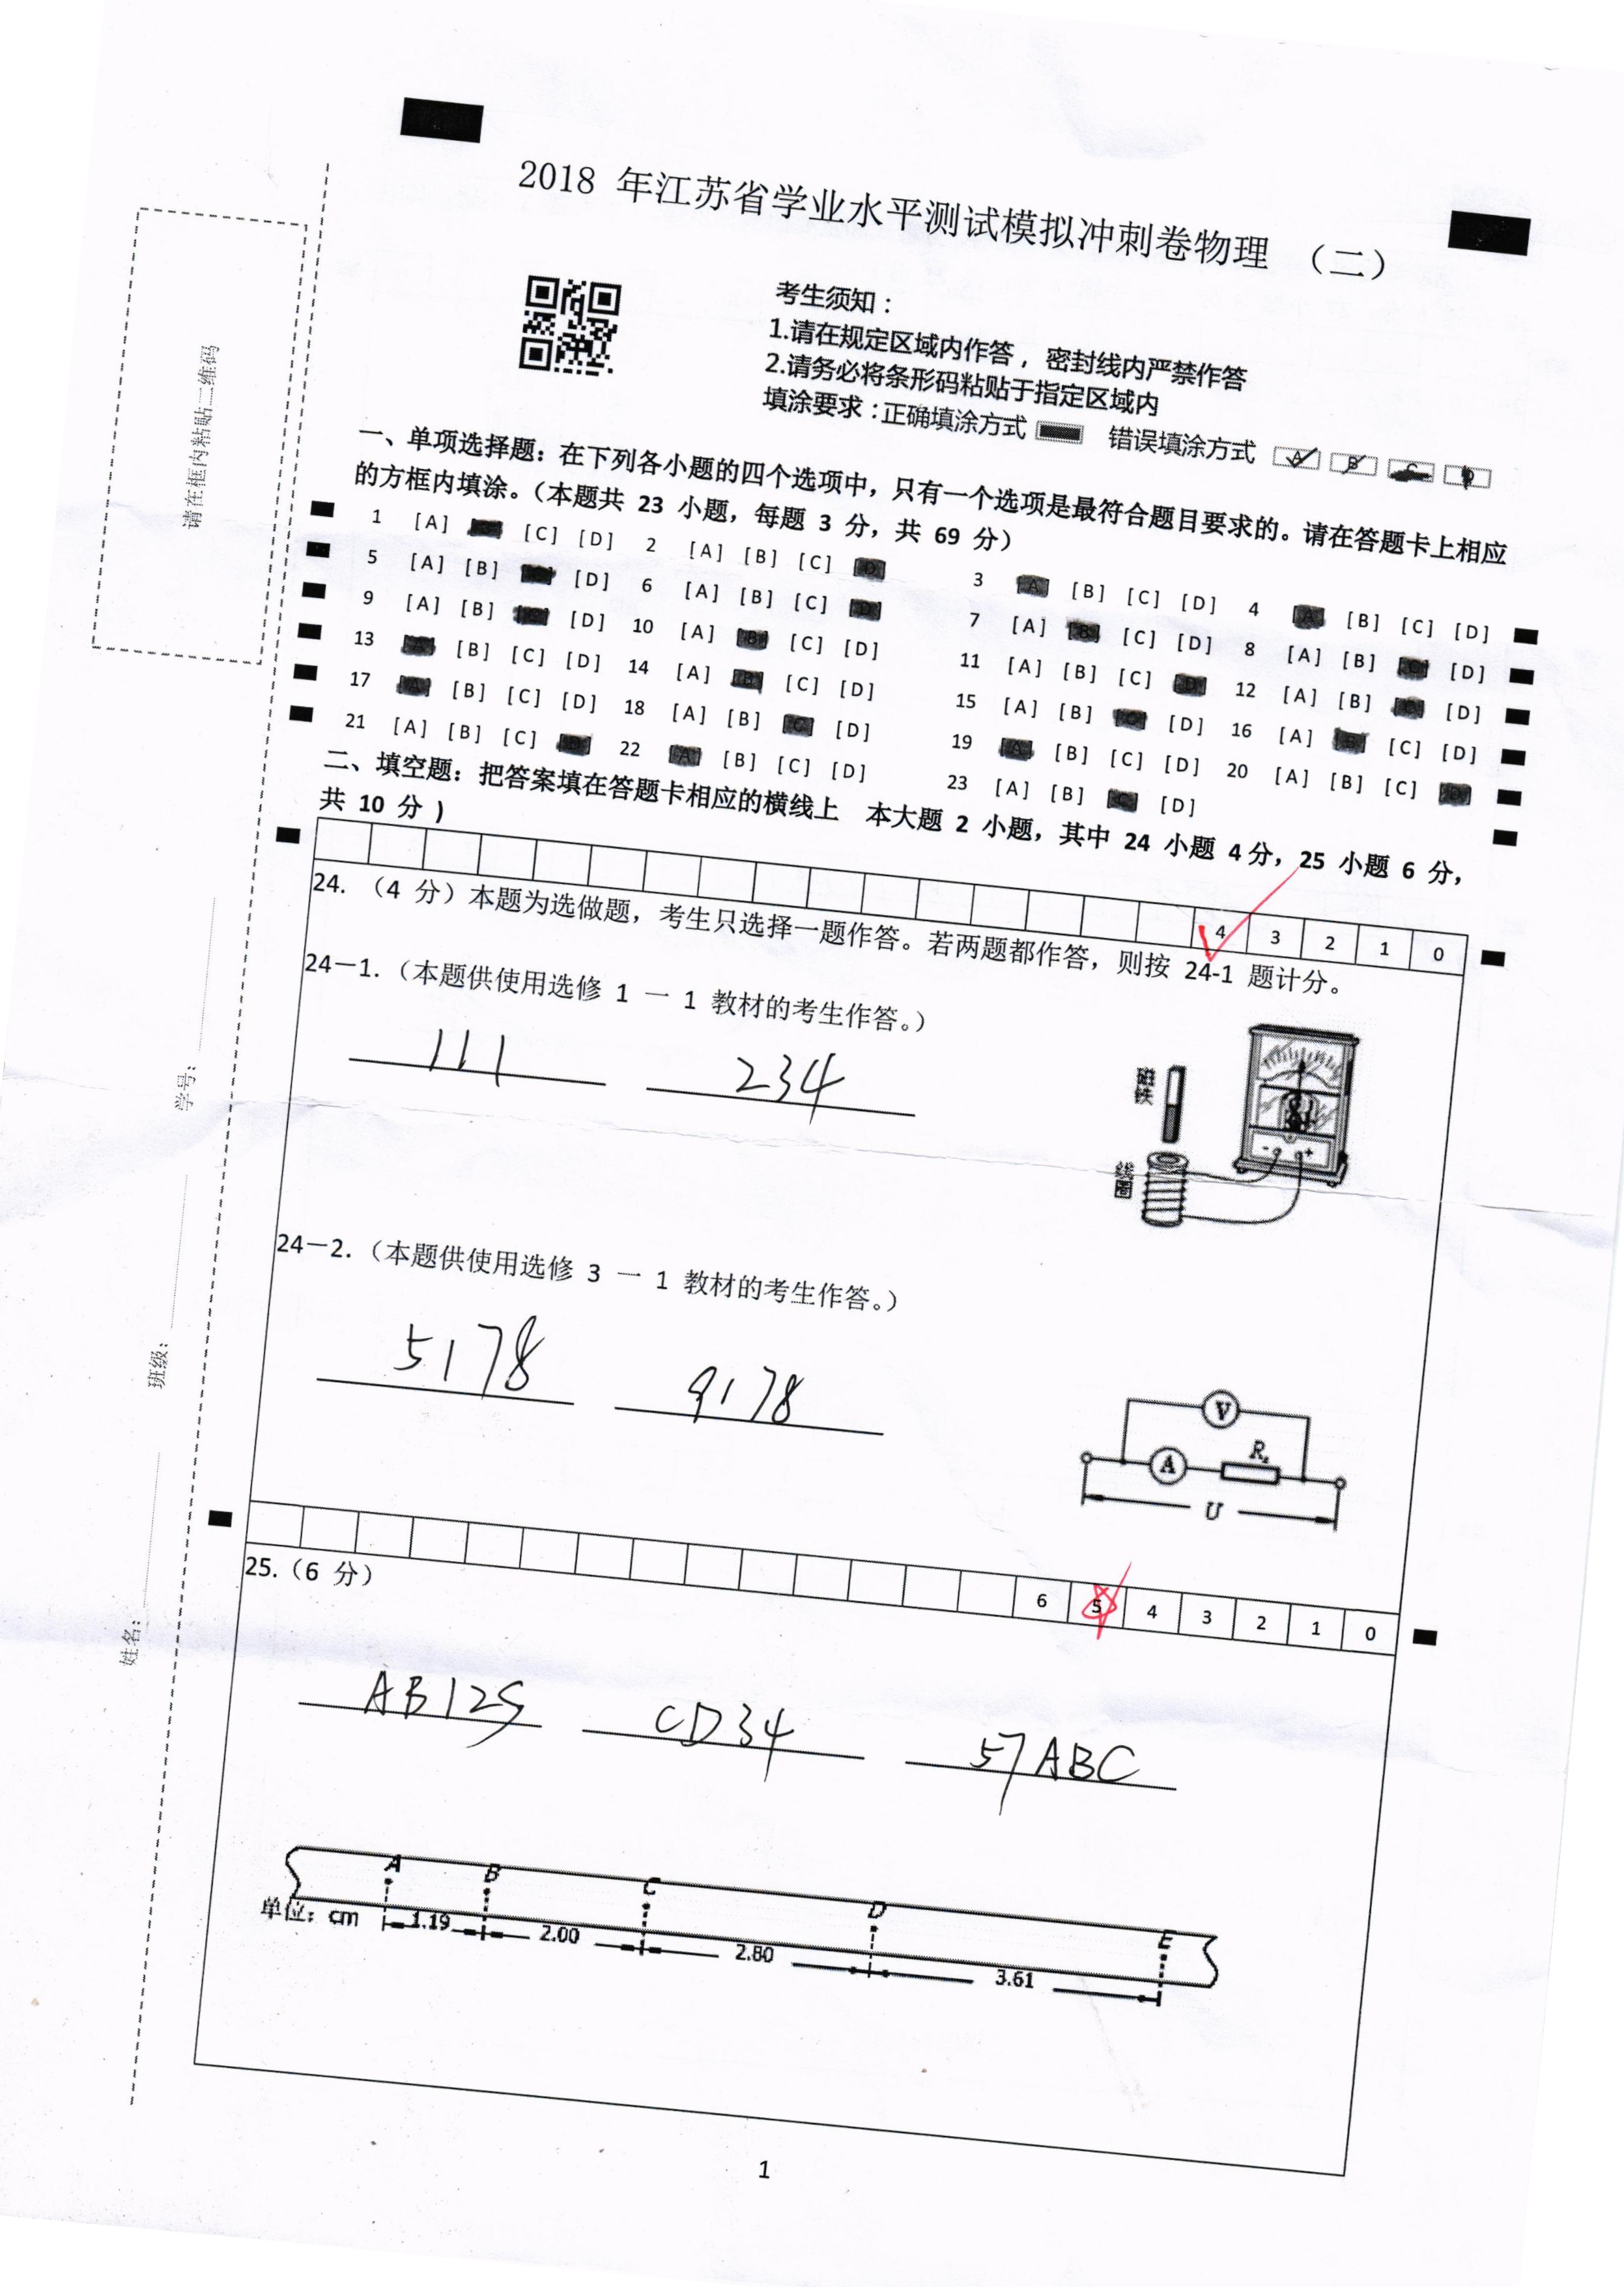 2018 年江苏省学业水平测试模拟冲刺卷物理 (二)
考生须知：
1.请在规定区域内作答，密封线内严禁作答
2.请务必将条形码粘贴于指定区域内
填涂要求：正确填涂方式 错误填涂方式 A B C D
请在框内粘贴二维码
一、单项选择题：在下列各小题的四个选项中，只有一个选项是最符合题目要求的。请在答题卡上相应
的方框内填涂。（本题共 23 小题，每题 3 分，共 69 分）
1 [A] [C] [D] 2 [A] [B] [C] [D] 3 [A] [B] [C] [D] 4 [A] [B] [C] [D]
5 [A] [B] [C] [D] 6 [A] [B] [C] [D] 7 [A] [B] [C] [D] 8 [A] [B] [C] [D]
9 [A] [B] [C] [D] 10 [A] [B] [C] [D] 11 [A] [B] [C] [D] 12 [A] [B] [C] [D]
13 [A] [B] [C] [D] 14 [A] [B] [C] [D] 15 [A] [B] [C] [D] 16 [A] [B] [C] [D]
17 [A] [B] [C] [D] 18 [A] [B] [C] [D] 19 [A] [B] [C] [D] 20 [A] [B] [C] [D]
21 [A] [B] [C] [D] 22 [A] [B] [C] [D] 23 [A] [B] [C] [D]
二、填空题：把答案填在答题卡相应的横线上 本大题 2 小题，其中 24 小题 4分，25 小题 6 分，
共 10 分 )
4 3 2 1 0
24. （4 分）本题为选做题，考生只选择一题作答。若两题都作答，则按 24-1 题计分。
24－1.（本题供使用选修 1 一 1 教材的考生作答。）
111 234
磁铁
线圈
- +
24－2.（本题供使用选修 3 一 1 教材的考生作答。）
5178 9178
V
A Rx
U
6 5 4 3 2 1 0
25.（6 分）
AB125 CD34 57ABC
A B C D E
单位：cm 1.19 2.00 2.80 3.61
学号：
班级：
姓名：
1